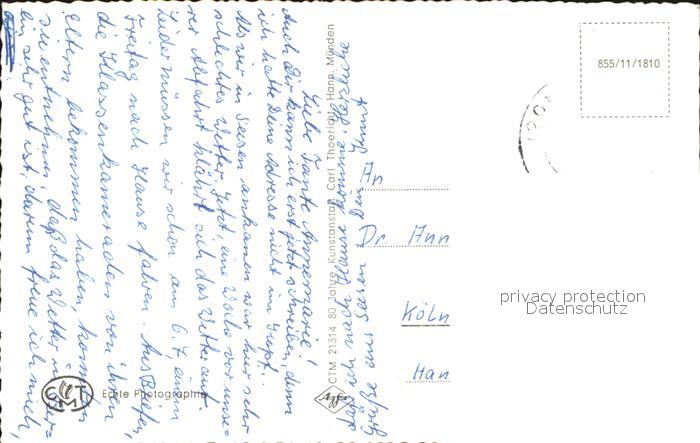 Liebe Tante Annemarie!
Auch Dir kann ich erst jetzt schreiben, denn
ich hatte Deine Adresse nicht im Kopf.
Als wir in Seesen ankamen war hier sehr
schlechtes Wetter. Jetzt, eine Woche vor unse-
rer Abfahrt klährt sich das Wetter auf.
Leider müssen wir schon am 6.7, einem
Freitag nach Hause fahren. Aus Briefen,
die Klassenkameraden von ihren
Eltern bekommen haben, konnten
wir entnehmen, daß das Wetter in
ein sehr gut ist, darum freue ich mich,
daß ich nach Hause komme. Herzliche
Grüße aus Seesen Dein
An
Dr. Ann
Köln
Han
855/11/1810
CTM 21314 80 Jahre Kunstanstalt Carl Thoericht, Hann. Münden
Agfa
CTM
Echte Photographie
privacy protection
Datenschutz